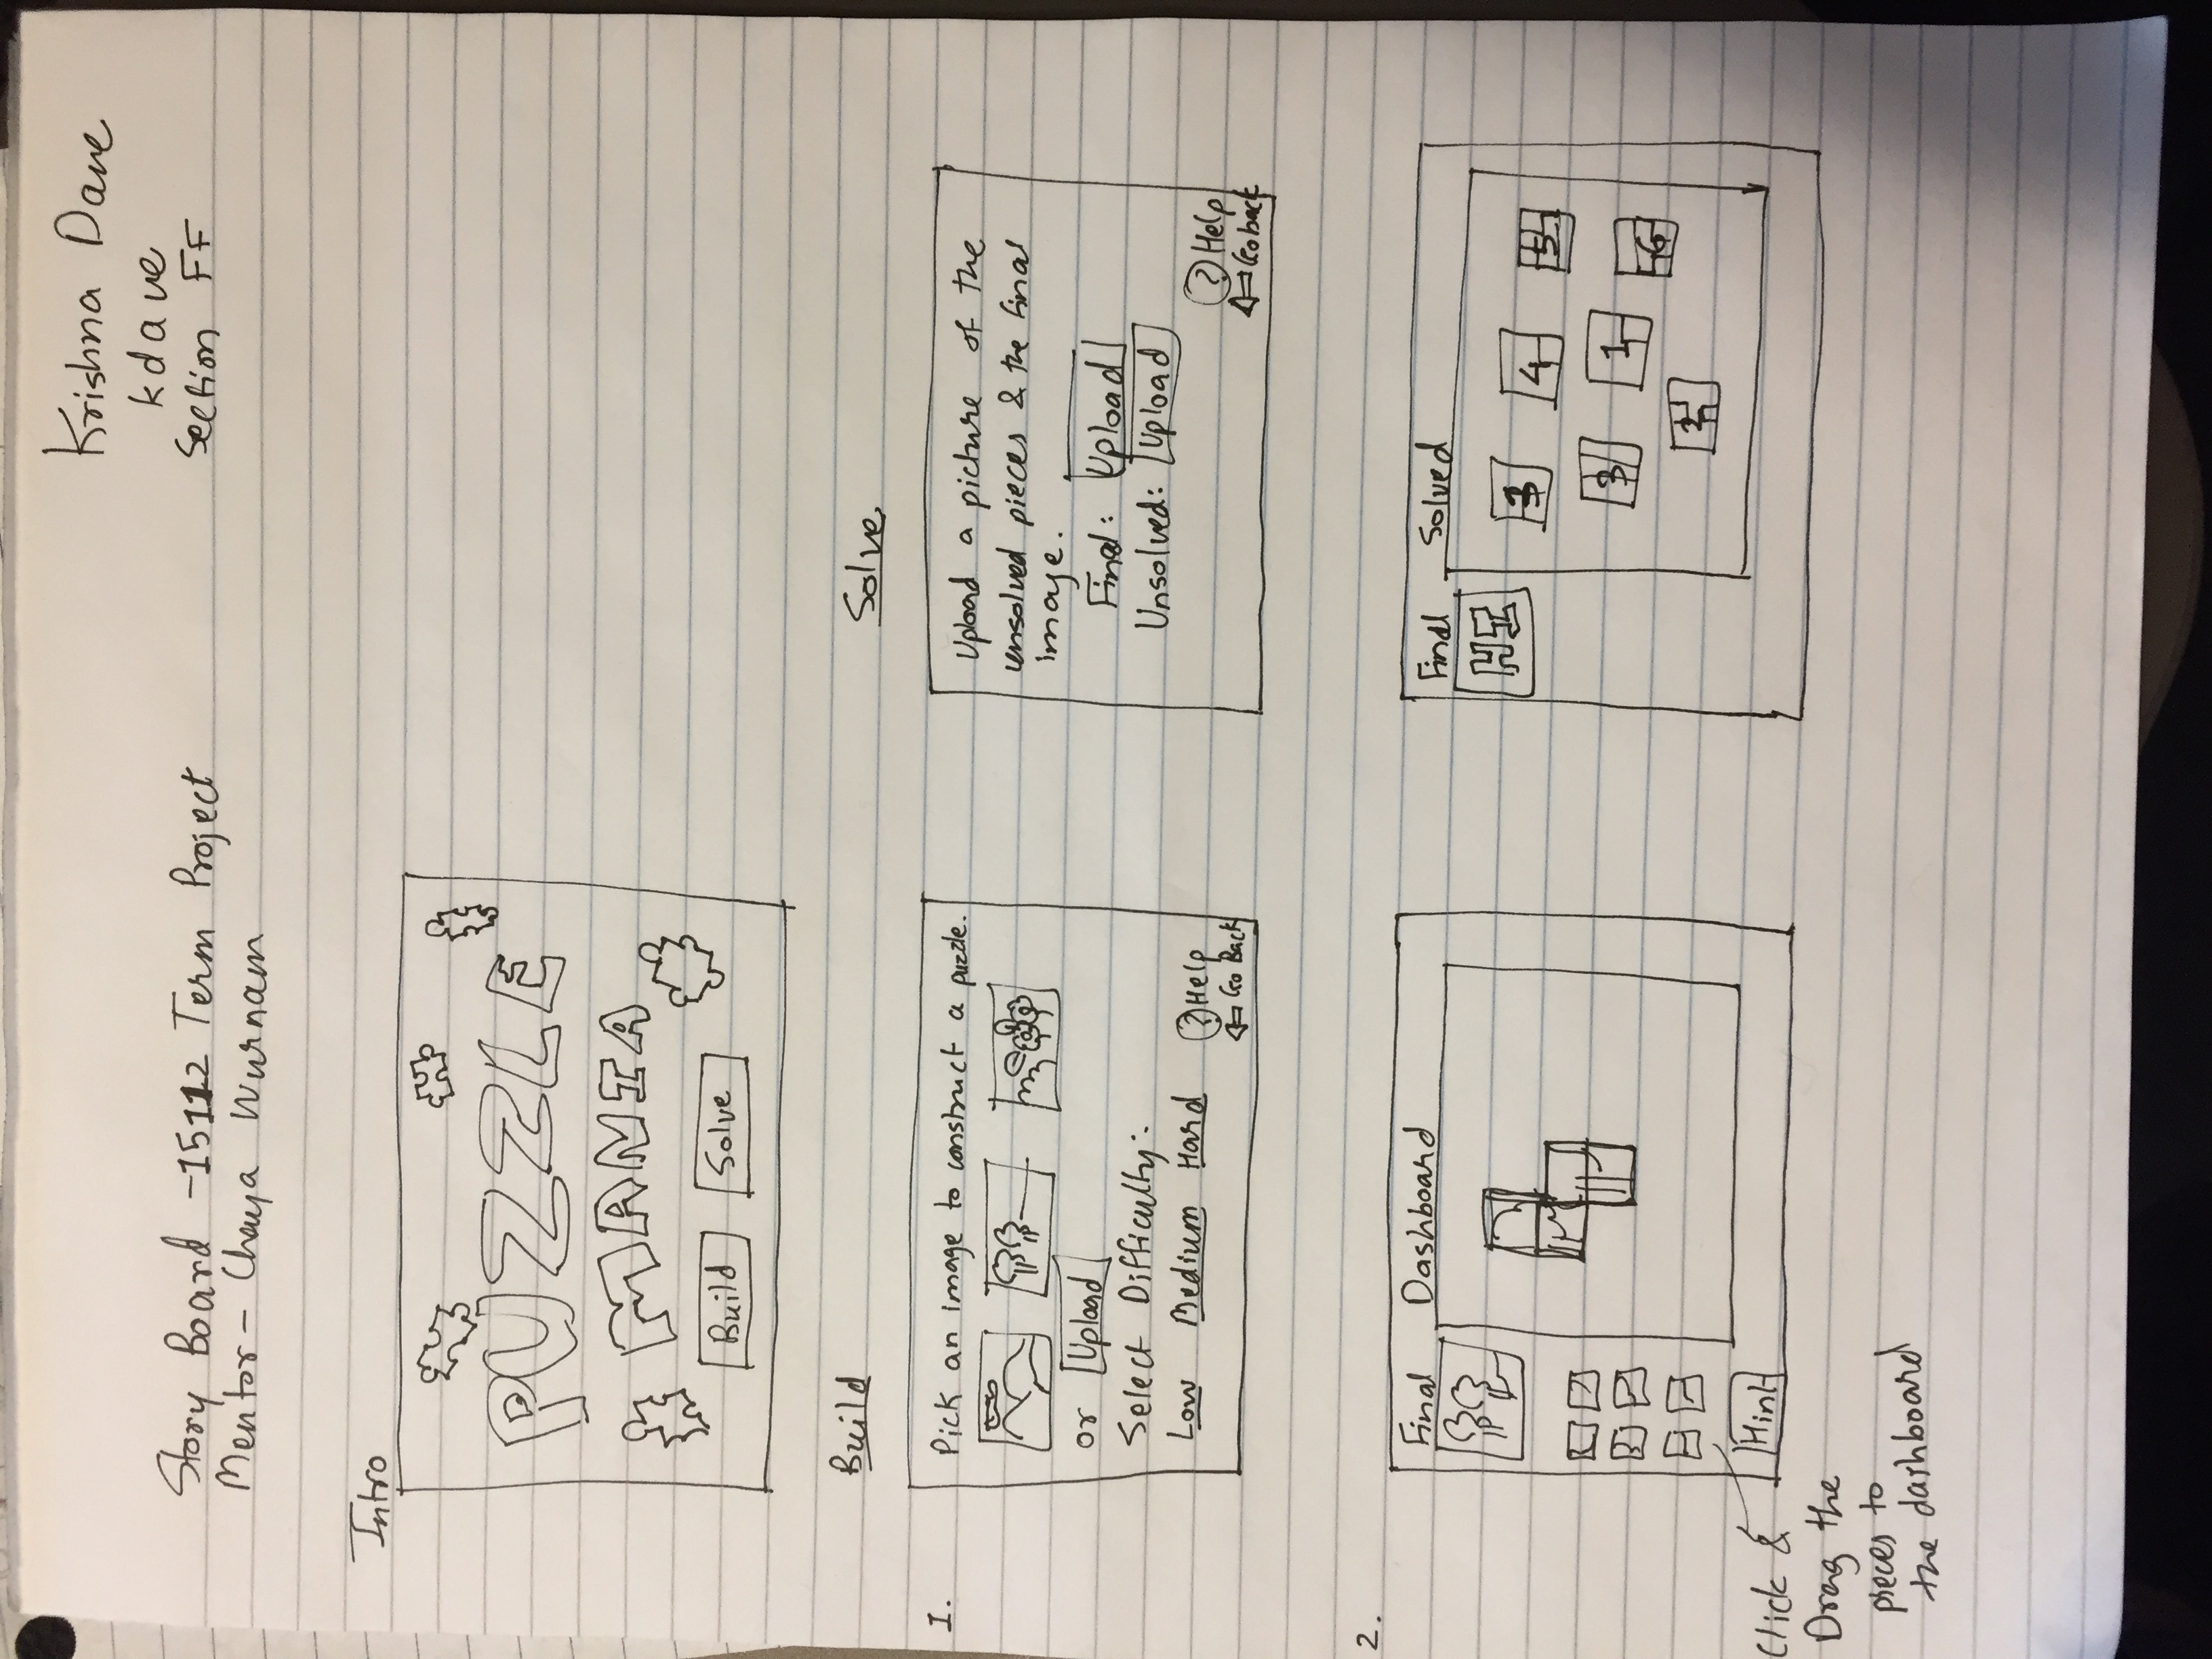 Krishna Dave
kdave
Section FF
Story Board -15112 Term Project
Mentor - Chaya Wurnam
Intro
PUZZLE
MANIA
Build Solve
Build
Solve
1.
Pick an image to construct a puzzle.
or Upload
Select Difficulty:
Low Medium Hard
? Help
Go Back
Upload a picture of the
unsolved pieces & the final
image.
Final: Upload
Unsolved: Upload
? Help
Go back
2.
Final Dashboard
Hint
Click &
Drag the
pieces to
the dashboard
Final Solved
HI
3 4 5
3 1 6
2